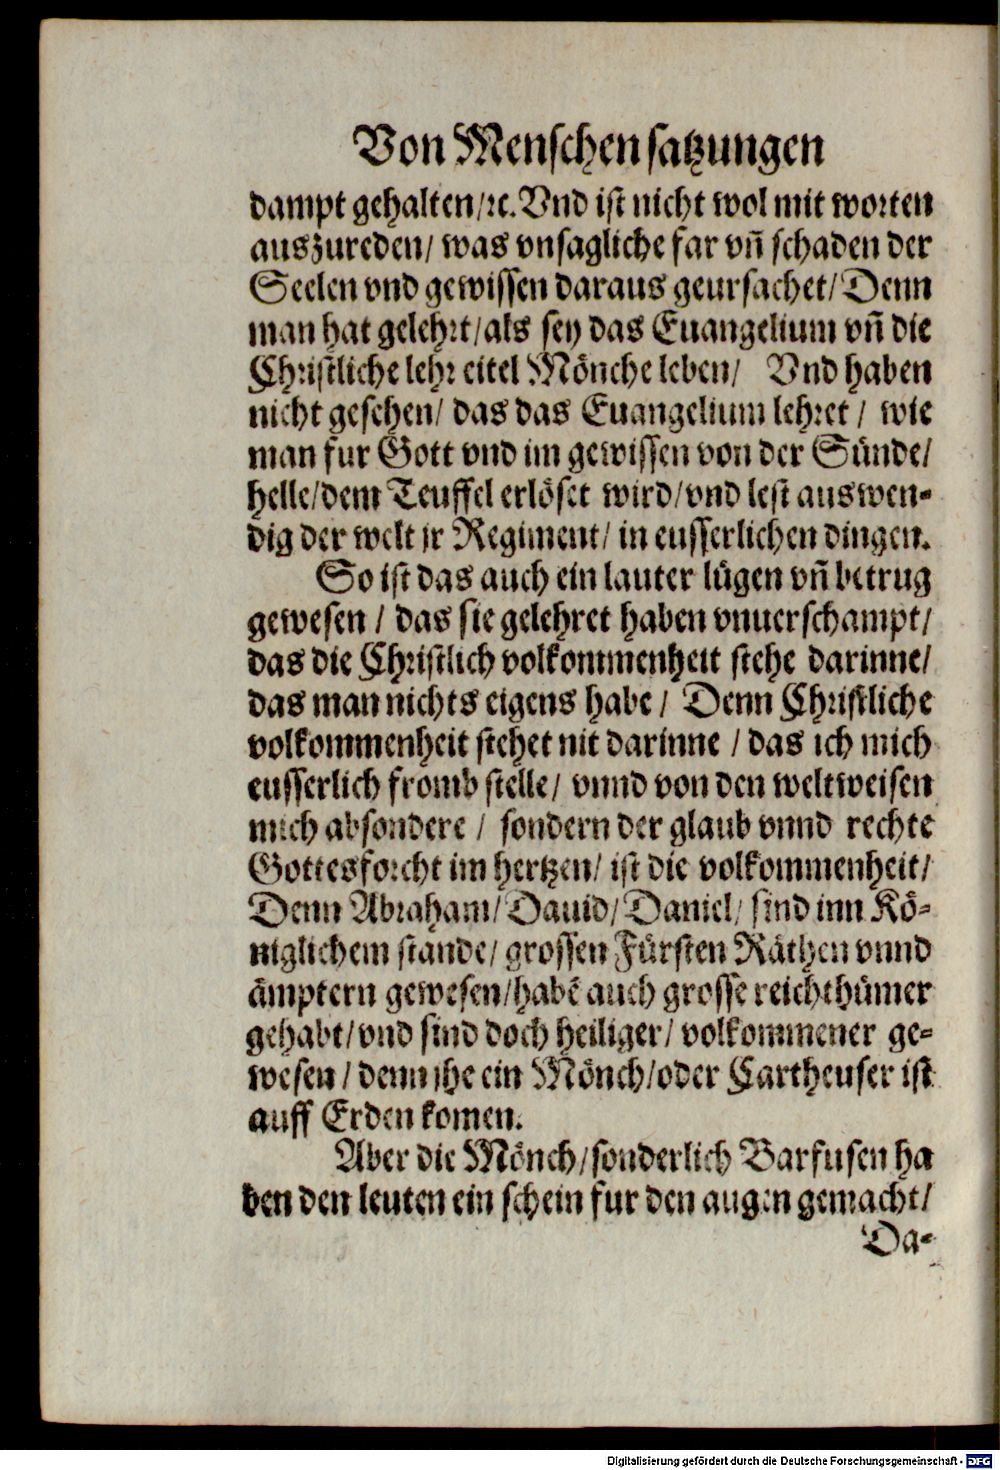 Von Menschen satzungen
dampt gehalten/ꝛc. Vnd ist nicht wol mit worten
auszureden/ was vnsagliche far vn̄ schaden der
Seelen vnd gewissen daraus geursachet/ Denn
man hat gelehrt/ als sey das Euangelium vn̄ die
Christliche lehr eitel Mönche leben/ Vnd haben
nicht gesehen/ das das Euangelium lehret / wie
man fur Gott vnd im gewissen von der Sünde/
helle/ dem Teuffel erlöset wird/ vnd lest auswen-
dig der welt jr Regiment/ in eusserlichen dingen.
So ist das auch ein lauter lügen vn̄ betrug
gewesen / das sie gelehret haben vnuerschampt/
das die Christlich volkommenheit stehe darinne/
das man nichts eigens habe / Denn Christliche
volkommenheit stehet nit darinne / das ich mich
eusserlich fromb stelle/ vnnd von den weltweisen
mich absondere / sondern der glaub vnnd rechte
Gottesforcht im hertzen/ ist die volkommenheit/
Denn Abraham/ Dauid/ Daniel/ sind inn Kö-
niglichem stande/ grossen Fürsten Räthen vnnd
ämptern gewesen/ habē auch grossē reichthümer
gehabt/ vnd sind doch heiliger/ volkommener ge-
wesen / denn jhe ein Mönch/ oder Cartheuser ist
auff Erden komen.
Aber die Mönch/ sonderlich Barfusen ha
ben den leuten ein schein fur den augen gemacht/
Da-
Digitalisierung gefördert durch die Deutsche Forschungsgemeinschaft - DFG